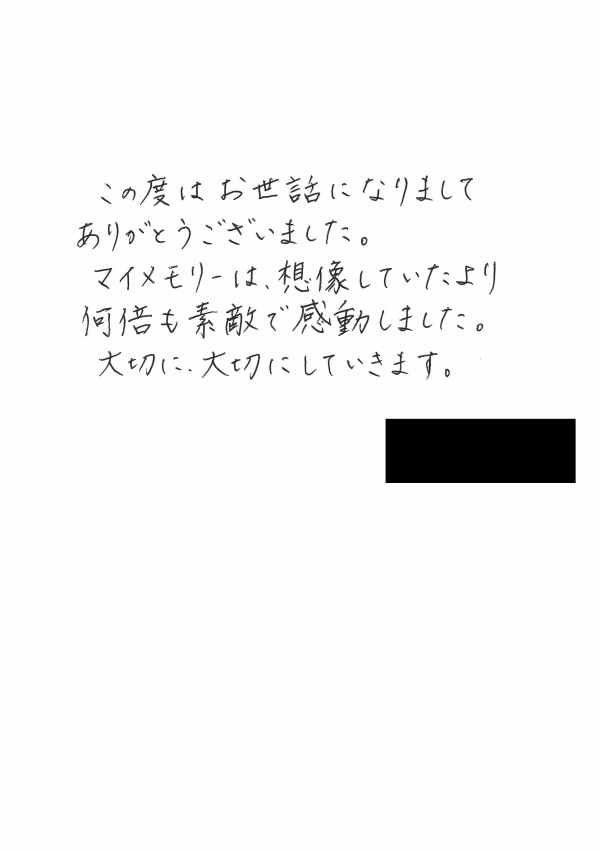 この度はお世話になりまして
ありがとうございました。
マイメモリーは、想像していたより
何倍も素敵で感動しました。
大切に、大切にしていきます。